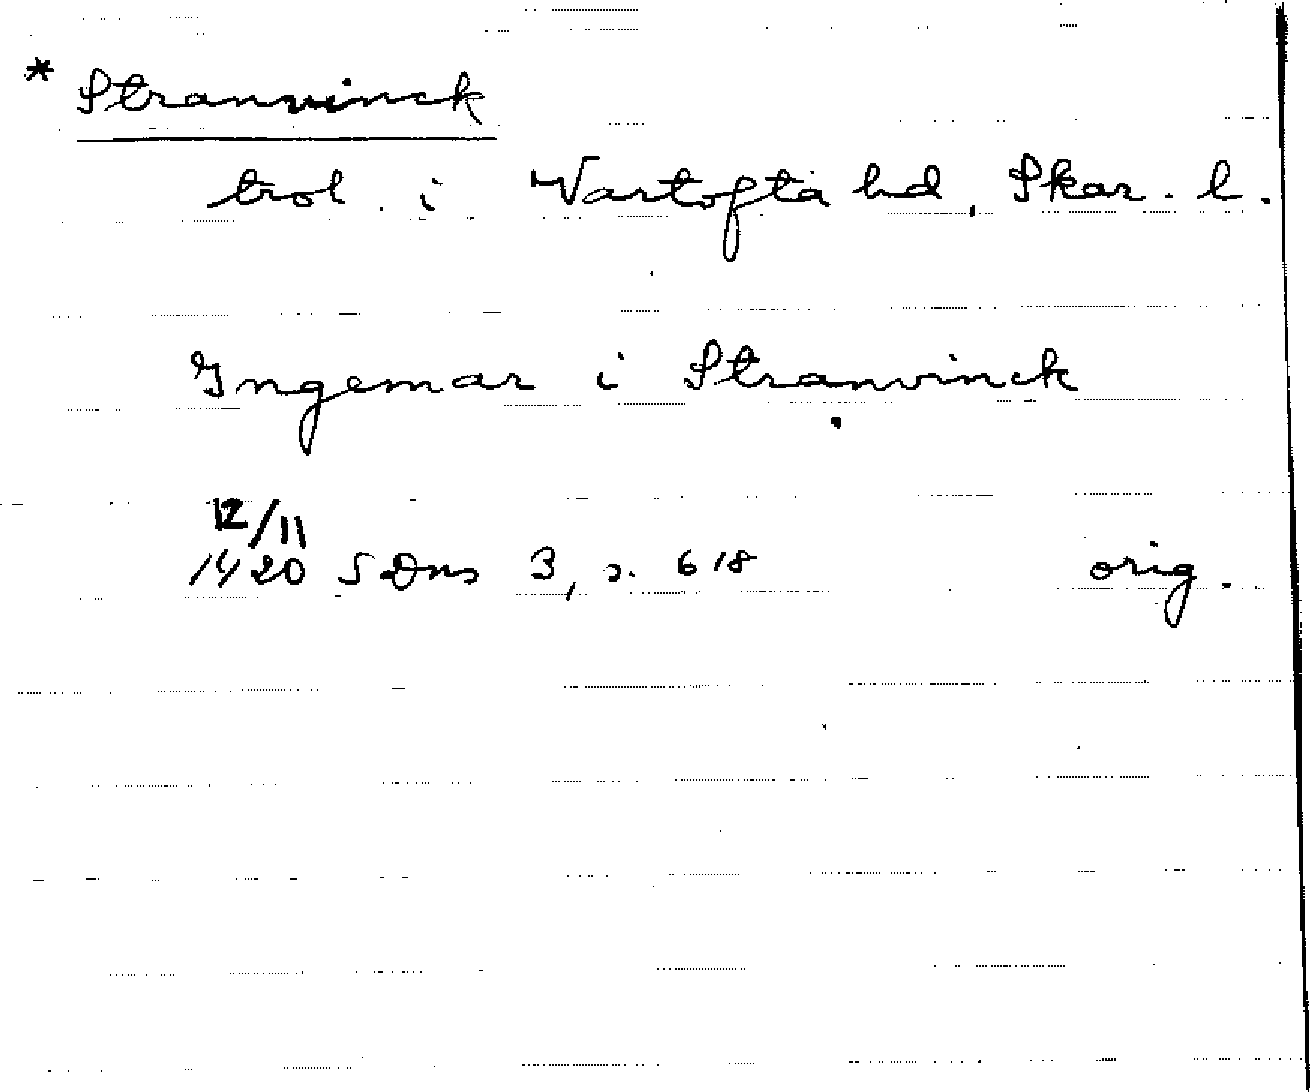 * Stranvinck
trol. i Vartofta hd, Skar. l.
Ingemar i Stranvinck
12/11
1420 SDns 3, s. 618 orig.